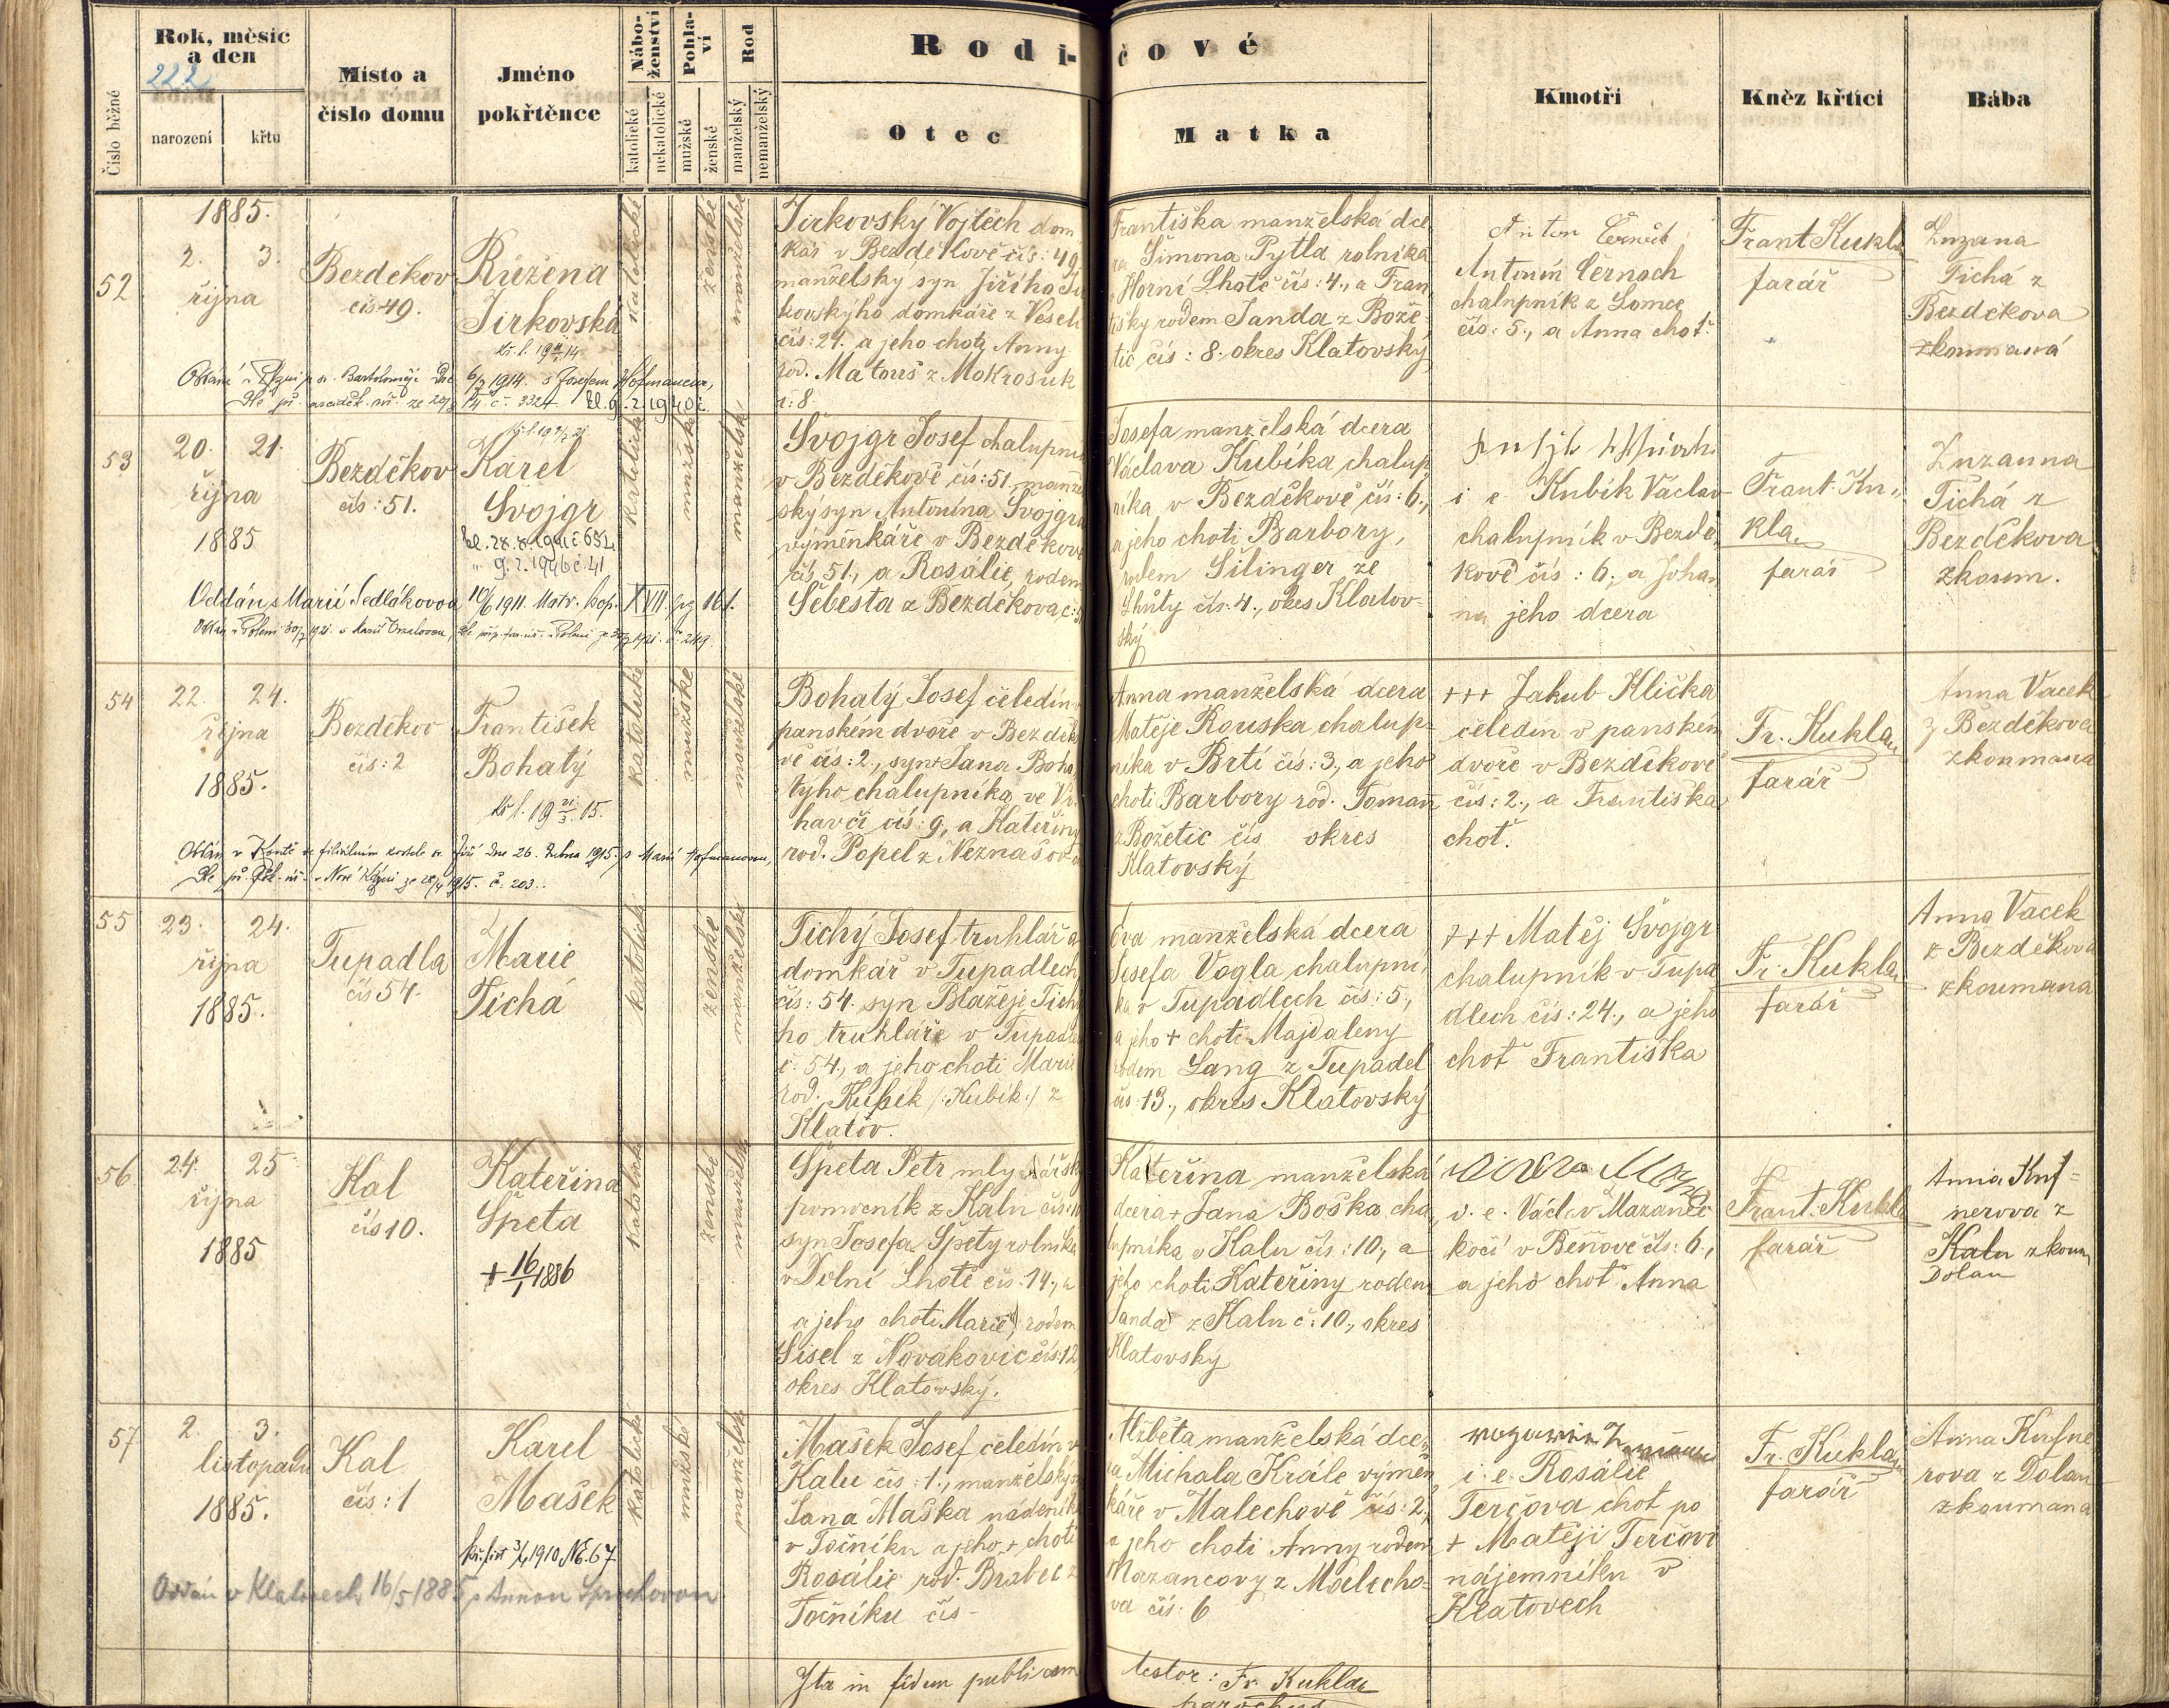 Rok, měsíc
a den
222
Číslo běžné
narození
křtu
Místo a
číslo domu
Jméno
pokřtěnce
Nábo-
ženství
katolické
nekatolické
Pohla-
ví
mužské
ženské
Rod
manželský
nemanželský
Rodi-
čové
Otec
Matka
Kmotři
Kněz křtící
Bába
52
1885.
2. 3.
října
Bezděkov
čís 49.
Růžena
Jirkovská
katolické
ženské
manželské
Jirkovský Vojtěch dom
kář v Bezděkově čís: 49
manželský syn Jiřího Ji
kovskýho domkáře z Veselí
čís: 24. a jeho choti Anny
rod. Matouš z Mokrosuk
č: 8.
Františka manželská dce
ra Šimona Pytla rolníka
Horní Lhotě čís: 4., a Fran
tišky rodem Janda z Bože-
tic čís: 8. okres Klatovský
Antonín Černoch
chalupník z Lomce
čís: 5., a Anna choť.
Frant Kukla
farář
Zuzana
Tichá z
Bezděkova
zkoumaná
6/7 1914. s Josefem Hofmanem,
53
20. 21.
října
1885
Bezděkov
čís: 51.
Karel
Švojgr
katolické
mužské
manželské
Švojgr Josef chalupník
v Bezděkově čís: 51., manžel
ský syn Antonína Švojgra
výměnkáře v Bezděkově
čís 51., a Rosalie, rodem
Šebesta z Bezděkova č: 5
Josefa manželská dcera
Václava Kubíka chalup
níka v Bezděkově čís: 6.,
a jeho choti Barbory,
rodem Šilinger ze
Lhůty čís. 4., okres Klatov-
ský
i. e. Kubík Václav
chalupník v Bezdě-
kově čís: 6. a Joha
na jeho dcera
Frant. Ku-
kla
farář
Zuzanna
Tichá z
Bezděkova
zkoum.
Oddán s Marií Sedlákovou 10/6 1911. Matr. kop. XVII pg 161.
54
22. 24.
října
1885.
Bezděkov
čís: 2
František
Bohatý
katolické
mužské
manželské
Bohatý Josef čeledín v
panském dvoře v Bezděko
vě čís: 2., syn + Jana Boha
týho chalupníka ve Vr
havči čís: 9., a Kateřiny
rod. Popel z Neznašov
Anna manželská dcera
Matěje Rouska chalup-
níka v Brtí čís: 3., a jeho
choti Barbory rod. Toman
z Božetic čís okres
Klatovský
+++ Jakub Klička
čeledín v panském
dvoře v Bezděkově
čís: 2., a Františka
choť.
Fr. Kukla
farář
Anna Vacek
z Bezděkova
zkoumana
55
23. 24.
října
1885.
Tupadla
čís 54.
Marie
Tichá
katolické
ženské
manželské
Tichý Josef truhlář a
domkář v Tupadlech
čís: 54. syn Blažeje Tich
ho truhláře v Tupadle
č: 54., a jeho choti Marie
rod. Kubik /: Kubík :/ z
Klatov.
Eva manželská dcera
Josefa Vogla chalupní
ka v Tupadlech čís: 5,
a jeho + choti Majdaleny
rodem Lang z Tupadel
čís 13., okres Klatovský
+++ Matěj Švojgr
chalupník v Tupa
dlech čís: 24., a jeho
choť Františka
Fr. Kukla
farář
Anna Vacek
z Bezděkova
zkoumana
56
24. 25
října
1885
Kal
čís 10.
Kateřina
Špeta
+ 16/1 1886
katolické
ženské
manželské
Špeta Petr mlynářský
pomocník z Kalu čís: 10
syn Josefa Špety rolníka
v Dolní Lhotě čís 14.,
a jeho choti Marie, rodem
Šisel z Novákovic čís: 12
okres Klatowský.
Kateřina manželská
dcera + Jana Boška cha
lupníka v Kalu čís: 10., a
jeho choti Kateřiny rodem
Janda z Kalu č: 10., okres
Klatovský
i. e. Václav Mazanec
kočí v Beňově čís: 6.,
a jeho choť Anna
Frant. Kukla
farář
nerova z
Kalu zkoum
Dolan
57
2. 3.
listopadu
1885.
Kal
čís: 1
Karel
Mašek
katolické
mužské
manželské
Mašek Josef čeledín v
Kalu čís: 1., manželský
Jana Maška nádeníka
v Točníku a jeho + choti
Rosálie rod. Brabec z
Točníku čís -
Alžběta manželská dce
ra Michala Krále výměn
káře v Malechově čís: 2.,
a jeho choti Anny rodem
Mazancovy z Malecho-
va čís: 6
i. e. Rosálie
Terčova choť po
+ Matěji Terčovi
nájemníku v
Klatovech
Fr. Kukla
farář
Anna Kufne
rova z Dolan
zkoumana
Oddán v Klatovech 16/5 1885
Ita in fidem publicam
testor: Fr. Kukla
parochus